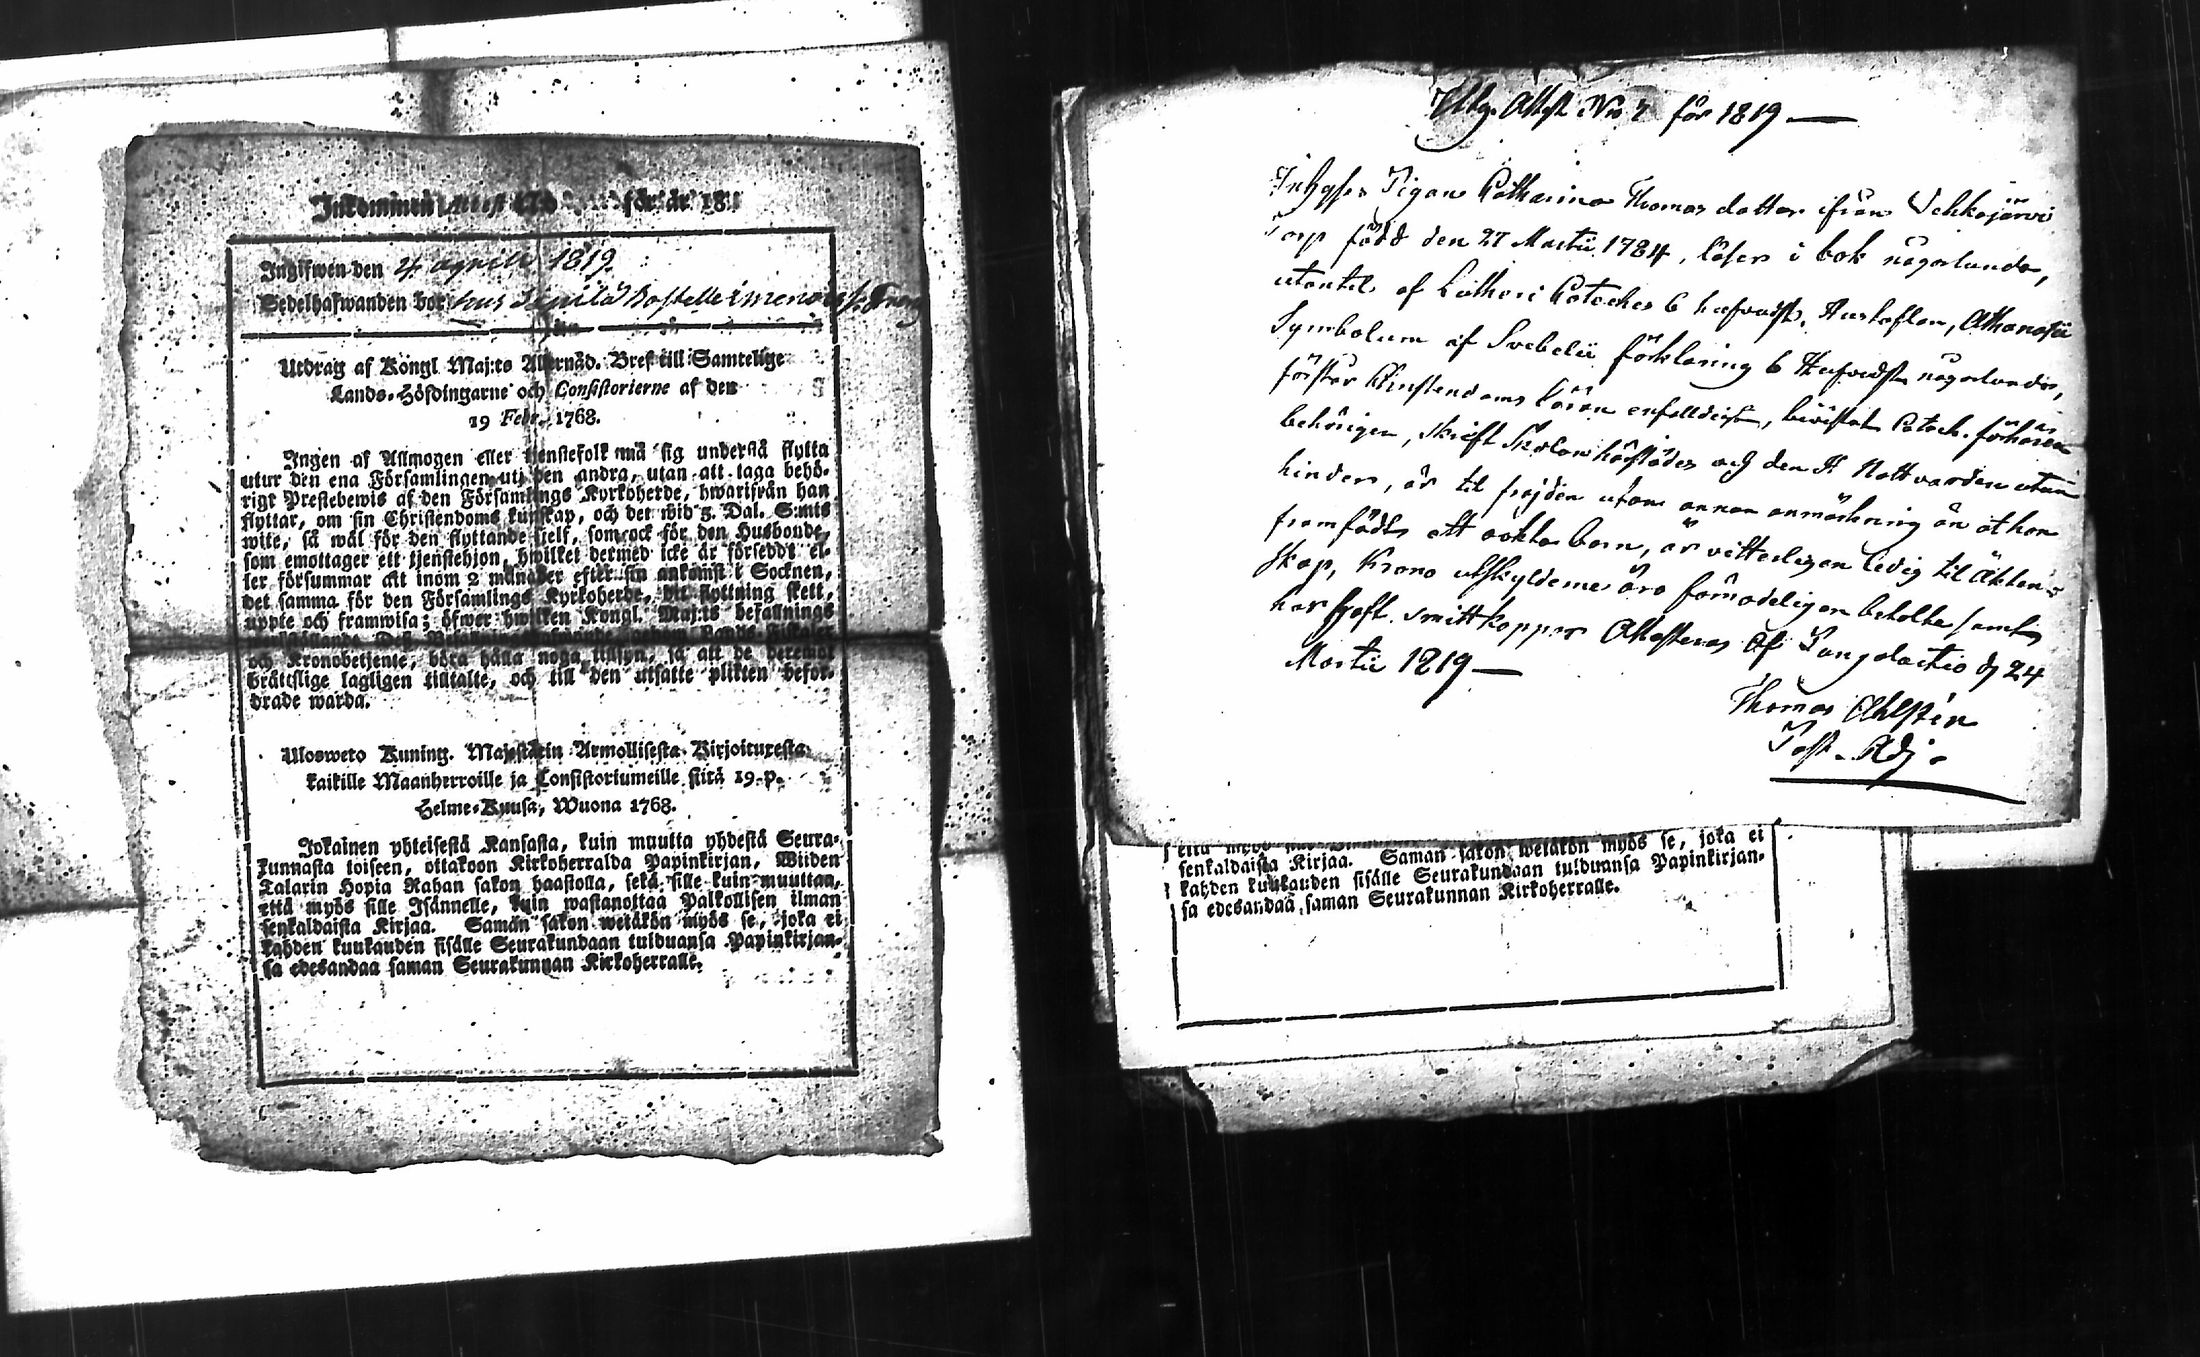 Inkommen Attest N:o för år 18
Ingifwen den 4 aprile 1819.
Sedelhafwanden bor hos
Utdrag af Kongl Maj:ts Allernåd. Bref till Samtelige
Lands-Höfdingarne och Consistorierne af den
19 Febr. 1768.
Ingen af Allmogen eller tjenstefolk må sig understå flytta
utur den ena Församlingen uti den andra, utan att taga behö-
rigt Prestebewis af den Församlings Kyrkoherde, hwarifrån han
flyttar, om sin Christendoms kunskap, och det wid 5. Dal. S:mts
wite, så wäl för den flyttande sielf, som ock för den Husbonde,
som emottager ett tjenstehjon, hwilket dermed icke är försedt el-
ler försummar att inom 2 månader efter sin ankomst i Socknen,
det samma för den Församlings Kyrkoherde, dit flyttning skett,
uppte och framwisa; öfwer hwilken Kongl. Maj:ts befallnings
och Kronobetjente, böra hålla noga tillsyn, så att de deremot
bråttslige lagligen tilltalte, och till den utsatte plikten befor-
drade warda.
Ulosweto Kuning. Majestätin Armollisesta Kirjoituxesta
kaikille Maanherroille ja Consistoriumeille siitä 19. p.
Helme-Kuusa, Wuona 1768.
Jokainen yhteisestä Kansasta, kuin muutta yhdestä Seura-
kunnasta toiseen, ottakoon Kirkoherralda Papinkirjan, Wiiden
Talarin Hopia Rahan sakon haastolla, sekä sille kuin muuttan,
että myös sille Isännelle, kuin wastanottaa Palkollisen ilman
senkaldaista Kirjaa. Saman sakon wetäkön myös se, joka ei
kahden kuukauden sisälle Seurakundaan tulduansa Papinkirjan-
sa edesandaa saman Seurakunnan Kirkoherralle.
Utg. Attest No 7 för 1819
Inhyses Pigan Catharina Thomas dotter ifrån Vehkajärvi
Torp född den 27 Martii 1784, läser i bok någorlunda,
utantil af Lutheri Cateches 6 hufvudst. Hustaflan, Athanasii
Symbolum af Svebelii förklaring 6 Hufvudst någorlunda,
förstår Christendoms läran enfalldeligen, bevistat Catech. förhören
behörigen, Skrift Skolan och den H Nattvarden utan
hinder, är til frejden utan annan anmärkning än at hon
framfödt ett oäkta barn, är vitterligen ledig til Äkten-
skap, Krono utskylderne äro förmodeligen betalte samt
har haft smittkoppor Attesteras af Langelmäki d 24
Martii 1819
Thomas Ahlstén
Past. Adj.
senkaldaista Kirjaa. Saman sakon wetäkön myös se, joka ei
kahden kuukauden sisälle Seurakundaan tulduansa Papinkirjan-
sa edesandaa saman Seurakunnan Kirkoherralle.